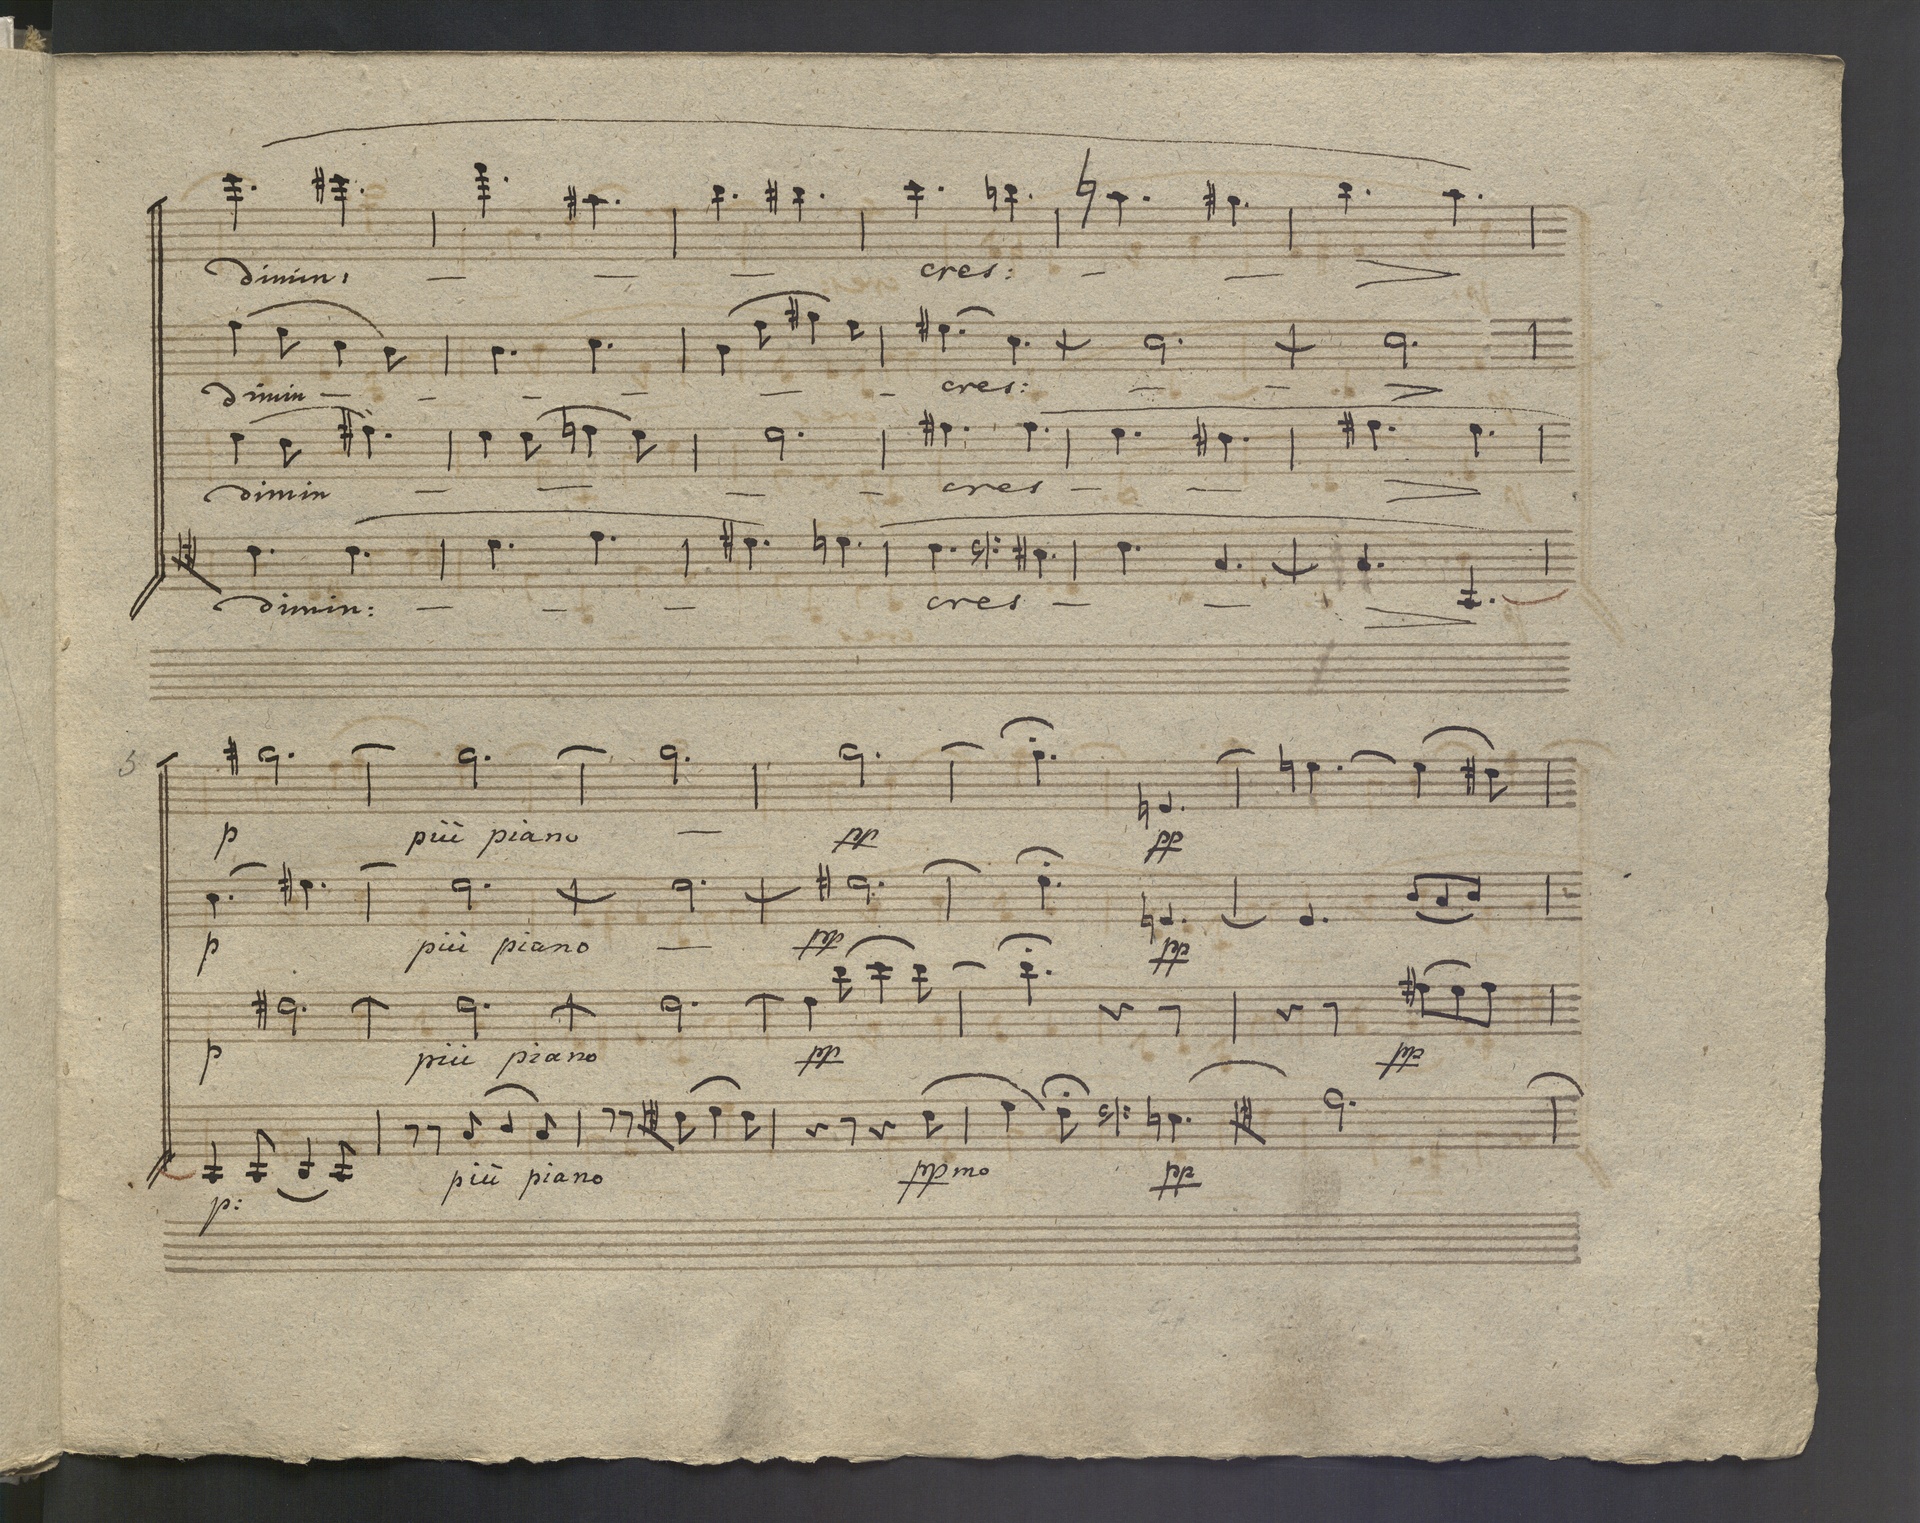 dimin:
cres:
dimin
cres:
dimin
cres
dimin:
cres
5
p più piano pp pp
p più piano pp pp
p più piano pp pp
p: più piano ppmo pp